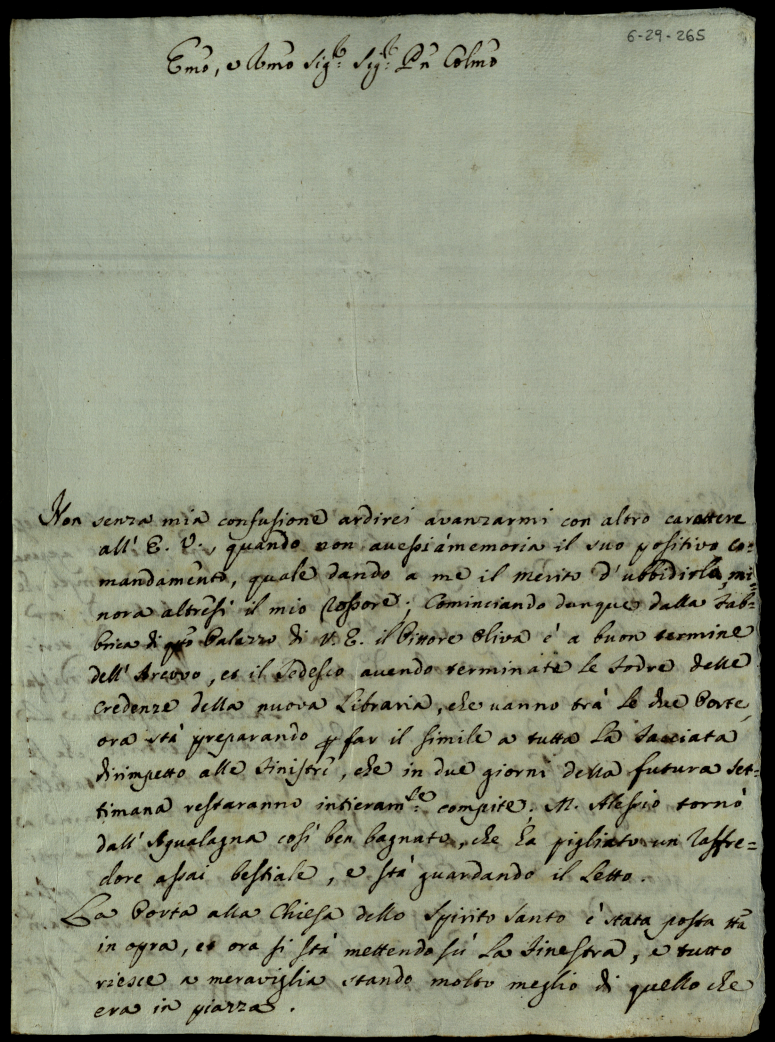 6-29-265
Emo, e Rmo Sig.r Sig.r Pn Colmo
Non senza mia confusione ardirei avanzarmi con altro carattere
all' E. V., quando non avessi à memoria il suo positivo co=
mandamento, quale dando a me il merito d'ubbidirla, mi=
nora altresì il mio rossore; Cominciando dunque dalla Fab=
brica di qto Palazzo di V. E. il Pittore Oliva è a buon termine
dell' Arcovo, et il Tedesco avendo terminate le fodre delle
Credenze della nuova Libraria, che vanno trà le due Porte,
ora stà preparando p far il simile a tutta la facciata
dirimpetto alle finistre, che in due giorni della futura Set=
timana restaranno intieram.te compite. M. Alessio tornò
dall' Agualagna così ben bagnato, che hà pigliato un raffre=
dore assai bestiale, e stà guardando il Letto.
La Porta alla Chiesa dello Spirito Santo è stata posta tta
in opra, et ora si stà mettendo sù la finestra, e tutto
riesce a meraviglia stando molto meglio di quello che
era in piazza.